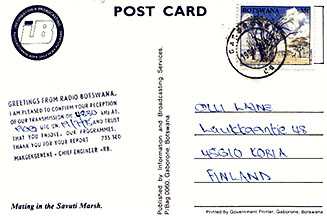 POST CARD
BOTSWANA
GREETINGS FROM RADIO BOTSWANA.
I AM PLEASED TO CONFIRM YOUR RECEPTION
OF OUR TRANSMISSION ON 4830 kHz AT
1900 UTC ON AND TRUST
THAT YOU ENJOYED OUR PROGRAMMES.
THANK YOU FOR YOUR REPORT
CHIEF ENGINEER -RB.
Mating in the Savuti Marsh.
Published by Information and Broadcasting Services,
P/Bag 0060, Gaborone, Botswana
OLLI LAINE
45310 KORIA
FINLAND
Printed by Government Printer, Gaborone, Botswana